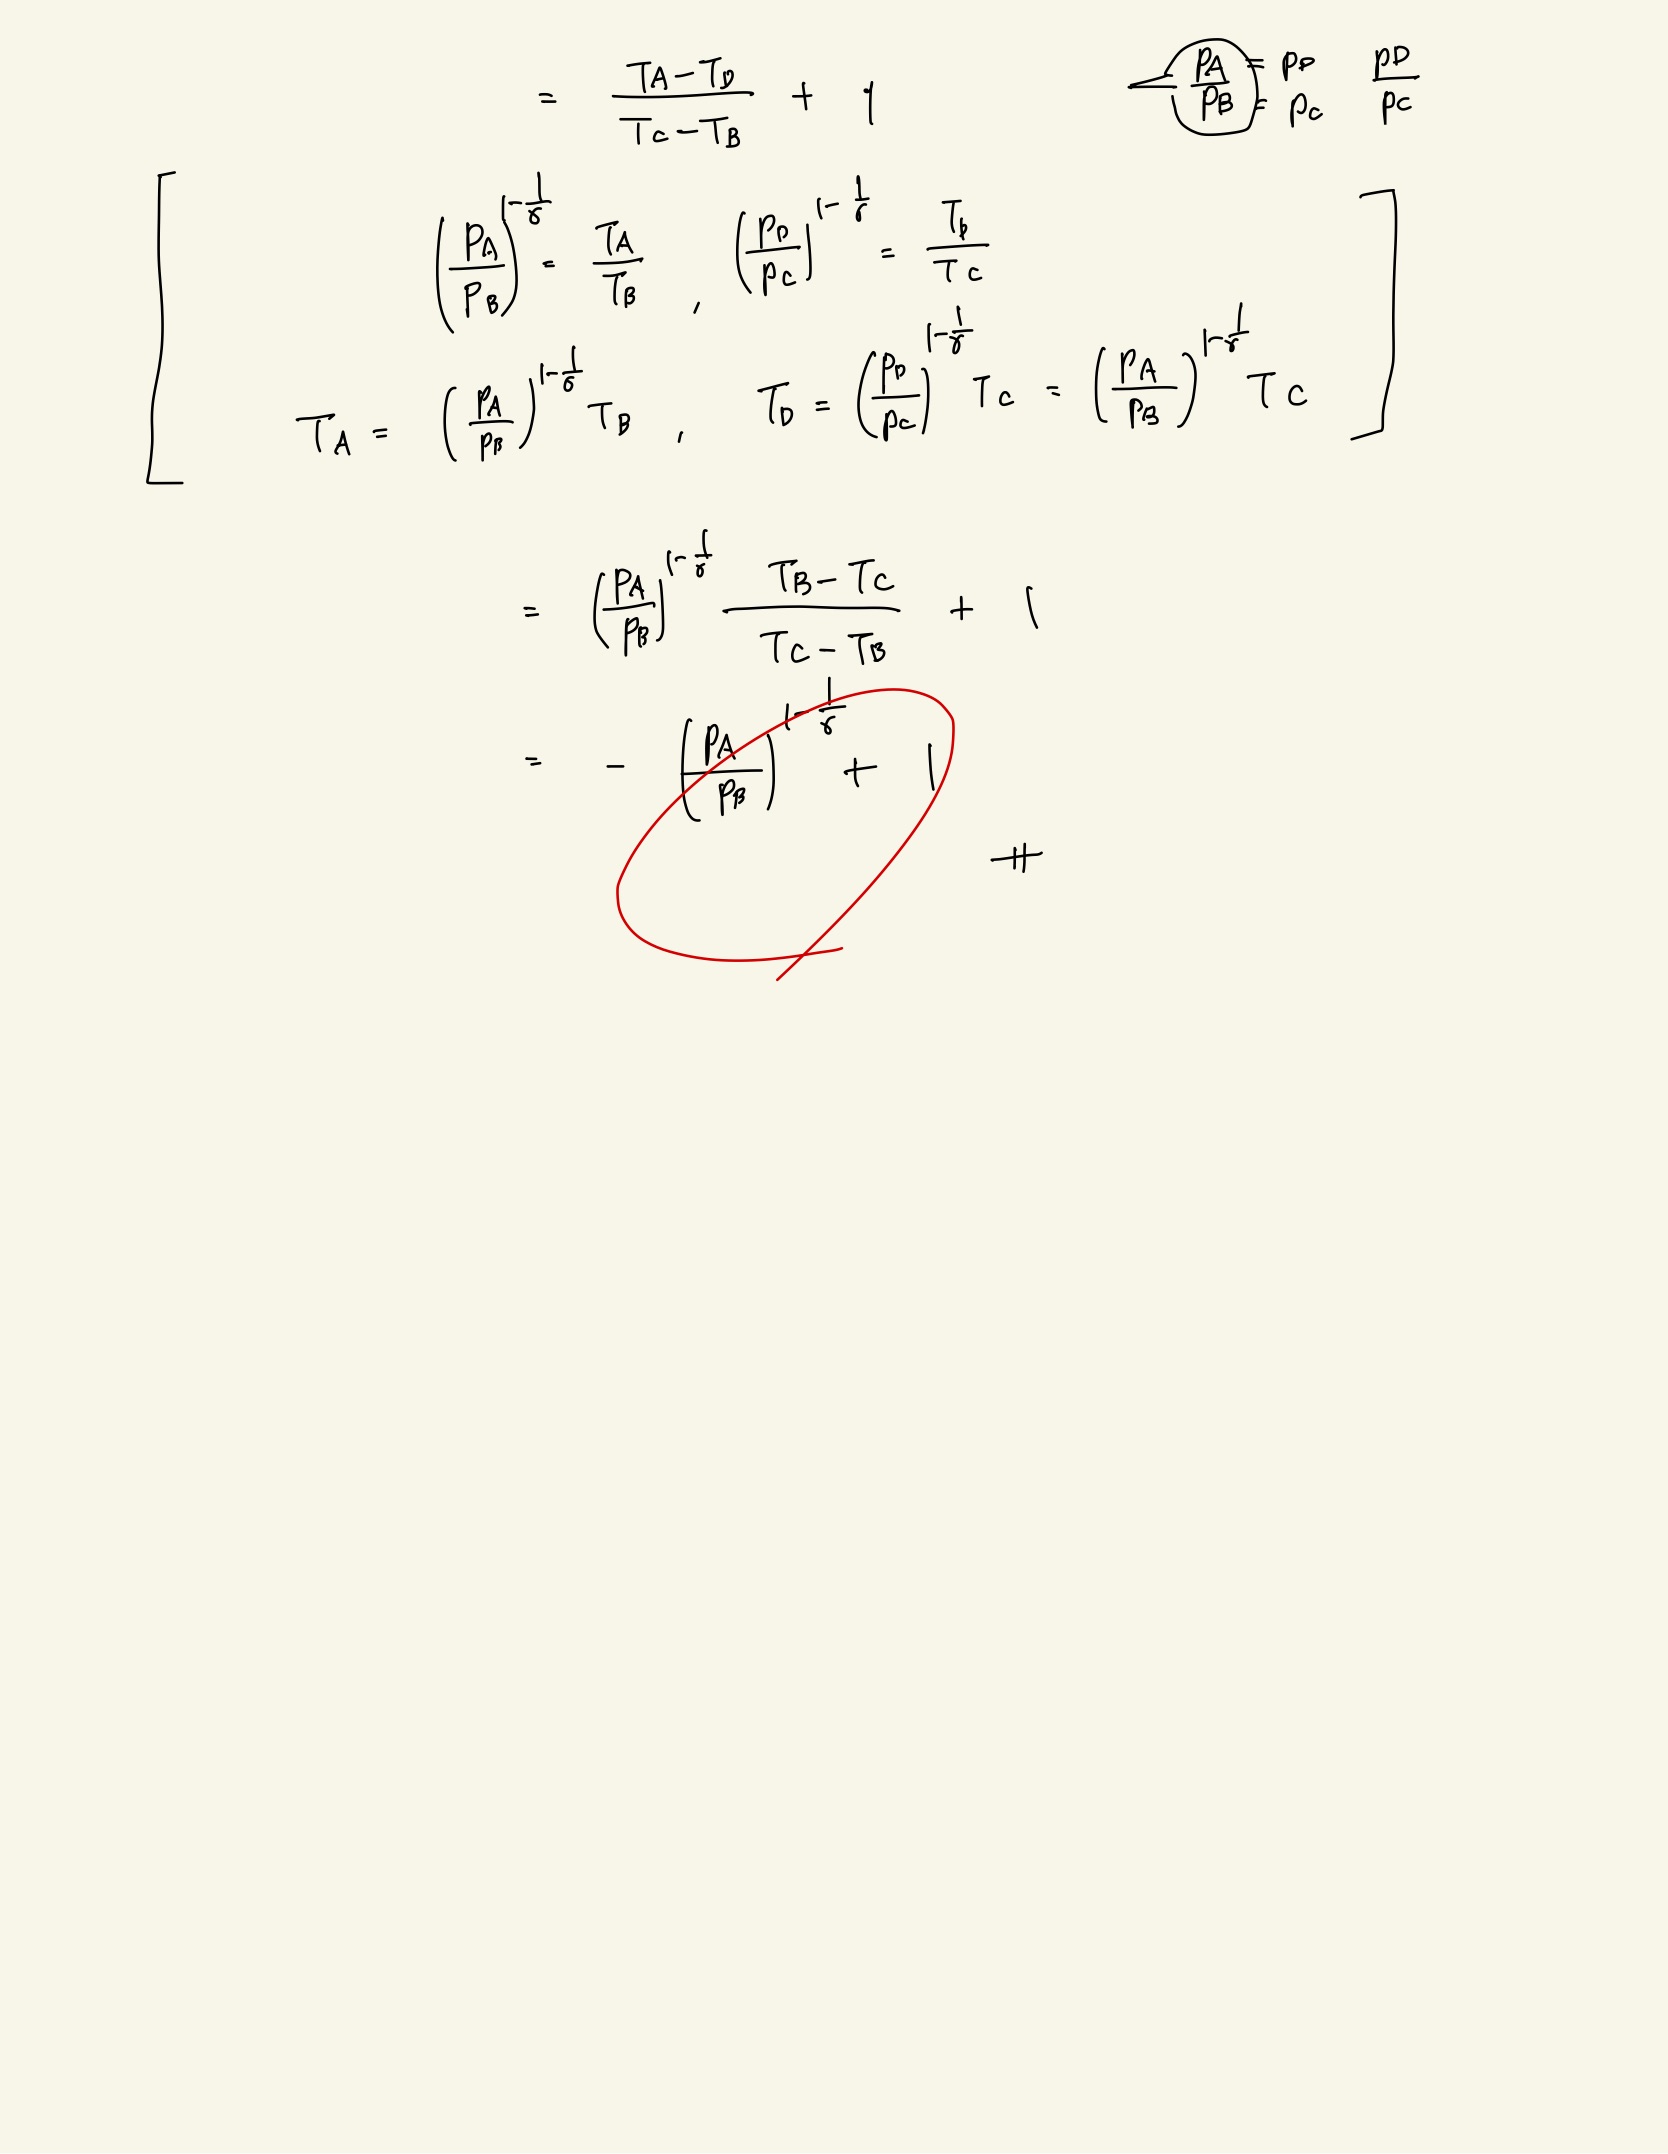 = (T_A - T_D)/(T_C - T_B) + 1   p_A/p_B = p_D = p_C   p_D/p_C
[ (p_A/p_B)^{1-1/γ} = T_A/T_B , (p_D/p_C)^{1-1/γ} = T_D/T_C
T_A = (p_A/p_B)^{1-1/γ} T_B , T_D = (p_D/p_C)^{1-1/γ} T_C = (p_A/p_B)^{1-1/γ} T_C ]
= (p_A/p_B)^{1-1/γ} (T_B - T_C)/(T_C - T_B) + 1
= - (p_A/p_B)^{1-1/γ} + 1
#